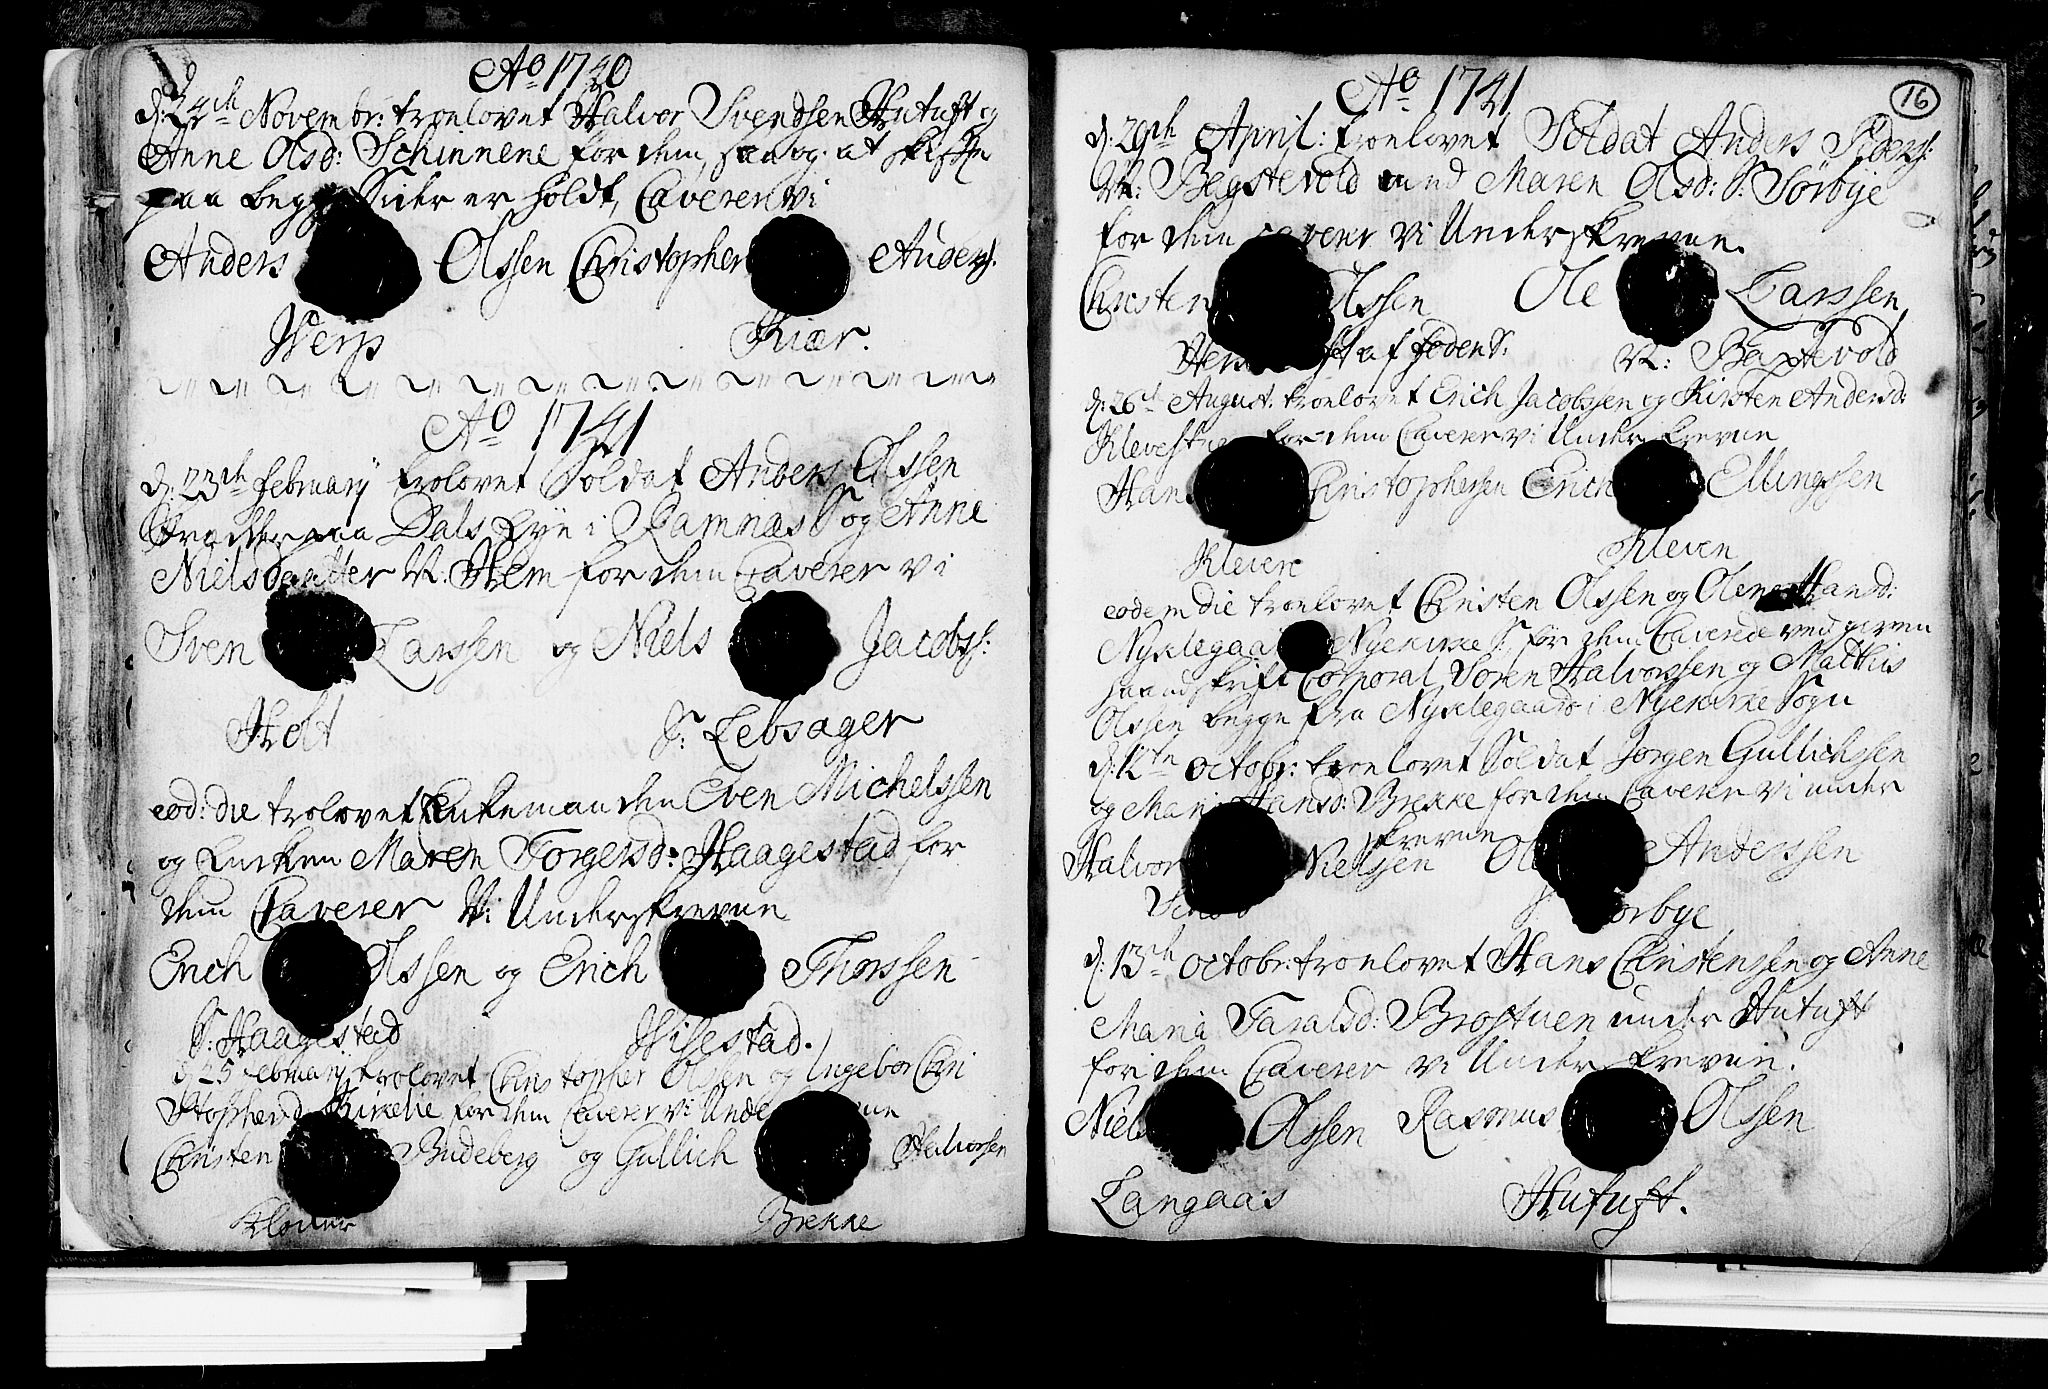 Ao 1740
d: 24th Novembr: troelovet Halvor Svendsen Hutuft og
Anne Olsd: Schinnene for dem, saa og at skifte
paa begge Sider er holdt, Caverer vi
Anders Olssen Christopher Anders:
Werp Kiær.
Ao 1741
d: 23th february trolovet Soldat Anders Olssen
paa Dals Eye i Ramnæs S og Anne
Nielsdaatter V: Hem for dem Caverer vi
Sven Larssen og Niels Jacobs:
Holt S: Lebsager
eod: die trolovet Enkemanden Even Michelssen
og Enken Maren Torgersd: Haagestad for
dem Caverer Vi Underskrevne
Erich Olssen og Erich Thorssen
S: Haagestad Wisestad.
d 25 februarij trolovet Christopher Olssen og Ingebor Chri
stophersd Birkelie for dem Caverer vi Unde vne
Christen Budeberg og Gullich Halvorssen
Klouer Brekke
16
Ao 1741
d: 29th April: troelovet Soldat Anders
V: Begstevold med Maren Olsd: S: Sörbye
for dem caverer vi Underskrevne.
Christen Olssen Ole Larssen
af Jedens: V: Bextevold
d: 26t August: troelovet Erich Jacobssen og Kirsten Andersd:
Klevestuen for dem Caverer vi Underskrevne
Hans Christophersen Erich Ellingssen
Klevene Kleven
eodem die troelovet Christen Olssen og Olene Hansd:
Nyklegaa Nyekirke S: for dem Caverede ved given
haandskrift Corporal Sören Halvorssen og Matthis
Olssen begge fra Nyklegaard i Nyekirke Sogn
d: 12te octobr: troelovet Soldat Jorgen Gullichssen
og Mari Hansd: Brekke for dem Caverer vi under
skrevne
Halvor Nielssen Ole Anderssen
S Sorbye
d: 13th octobr: troelovet Hans Christensen og Anne
Maria Taralsd: Brostuen under Hutuft
for dem Caverer vi Underskrevne.
Niels Olssen Rasmus Olssen
Langaas Hutuft.